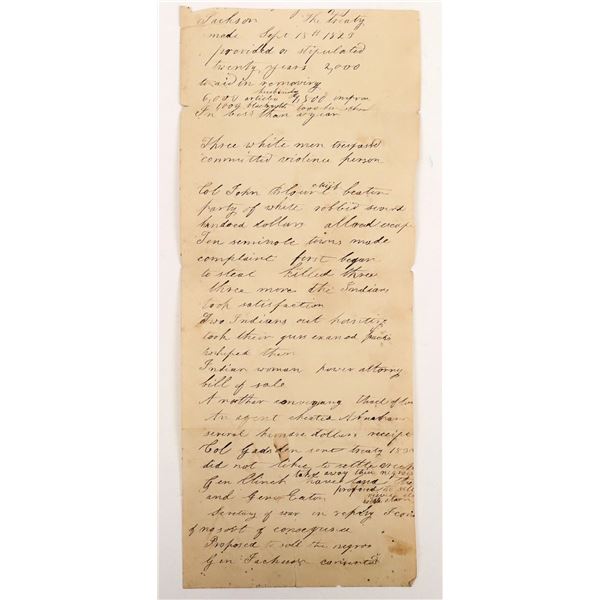 Jackson The Treaty
made Sept 18th 1823
provided or stipulated
twenty years 2,000
to aid in removing
husbandry
6,000 articles 4,500 improv
1000 blacksmith
In less than a year
Three white men trespass
committed violence person
Col John beaten
party of white robbed several
hundred dollars allowed escap
Ten seminole towns made
complaint first began
to steal killed three
three more the Indians
took satisfaction
Two Indians out hunting
took their guns examd packs
whiped them
Indian woman power attorney
bill of sale
Another conveying
An agent cheated Abraham
several hundred dollars receipt
Col Gadsden sent treaty
did not like to settle
take away their negroes
Gen Clinch
and Gen Eaton
Secretary of war in reply
of no sort of consequence
Proposed to sell the negros
Gen Jackson consented